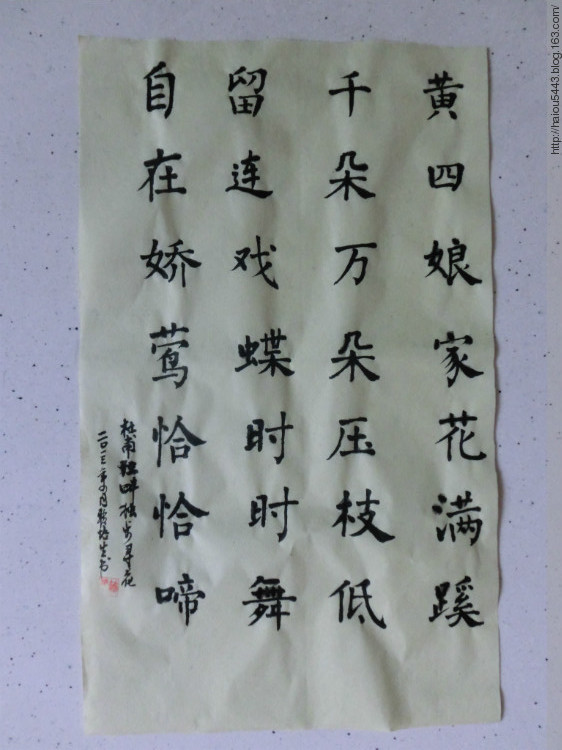 黄四娘家花满蹊
千朵万朵压枝低
留连戏蝶时时舞
自在娇莺恰恰啼
杜甫江畔独步寻花
二〇一三年
书
http://haiou5443.blog.163.com/